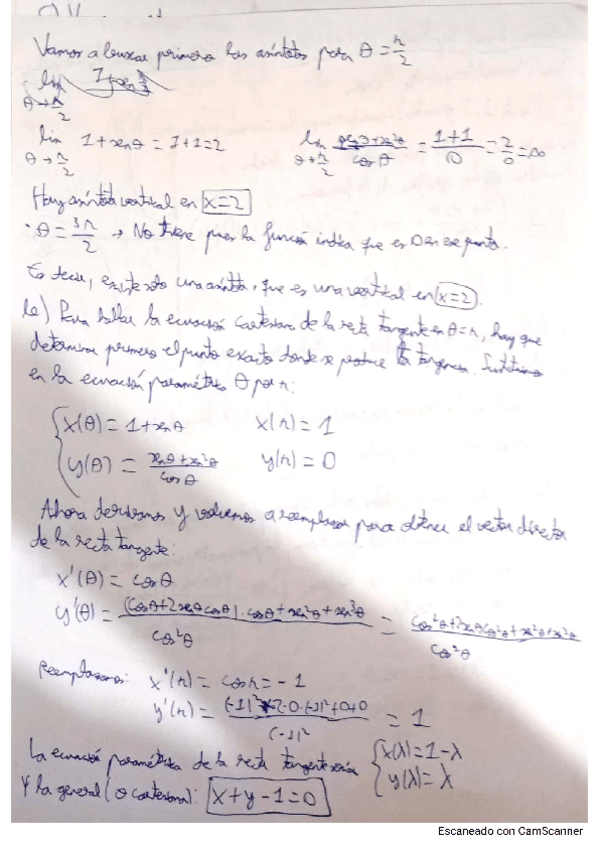 Vamos a buscar primero las asíntotas para θ = π/2
lim θ→π/2 1+senθ = 1+1=2    lim θ→π/2 (senθ+sen²θ)/cosθ = (1+1)/0 = 2/0 = ∞
Hay asíntota vertical en x=2
· θ = 3π/2 → No tiene pues la función indica que es 0 en ese punto.
Es decir, existe solo una asíntota, que es una vertical en x=2.
b) Para hallar la ecuación cartesiana de la recta tangente en θ=π, hay que
determinar primero el punto exacto donde se produce la tangencia. Sustituimos
en la ecuación paramétrica θ por π:
x(θ) = 1+senθ    x(π) = 1
y(θ) = (senθ+sen²θ)/cosθ    y(π) = 0
Ahora derivamos y volvemos a reemplazar para obtener el vector director
de la recta tangente:
x'(θ) = cosθ
y'(θ) = ((cosθ+2senθcosθ)·cosθ+sen²θ+sen³θ)/cos²θ = (cos²θ+2senθcos²θ+sen²θ+sen³θ)/cos²θ
Reemplazamos: x'(π) = cosπ = -1
y'(π) = ((-1)²+2·0·(-1)²+0+0)/(-1)² = 1
La ecuación paramétrica de la recta tangente sería { x(λ)=1-λ
y(λ)=λ
Y la general (o cartesiana): x+y-1=0
Escaneado con CamScanner